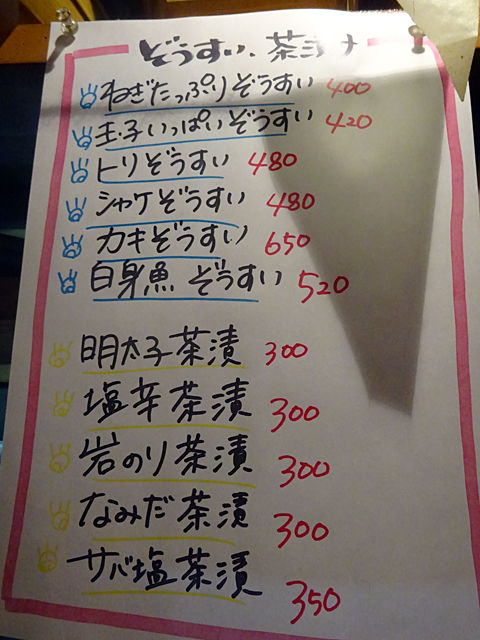 ぞうすい・茶づけ
ねぎたっぷりぞうすい 400
玉子いっぱいぞうすい 420
トリぞうすい 480
シャケぞうすい 480
カキぞうすい 650
白身魚 ぞうすい 520
明太子茶漬 300
塩辛茶漬 300
岩のり茶漬 300
なみだ茶漬 300
サバ塩茶漬 350